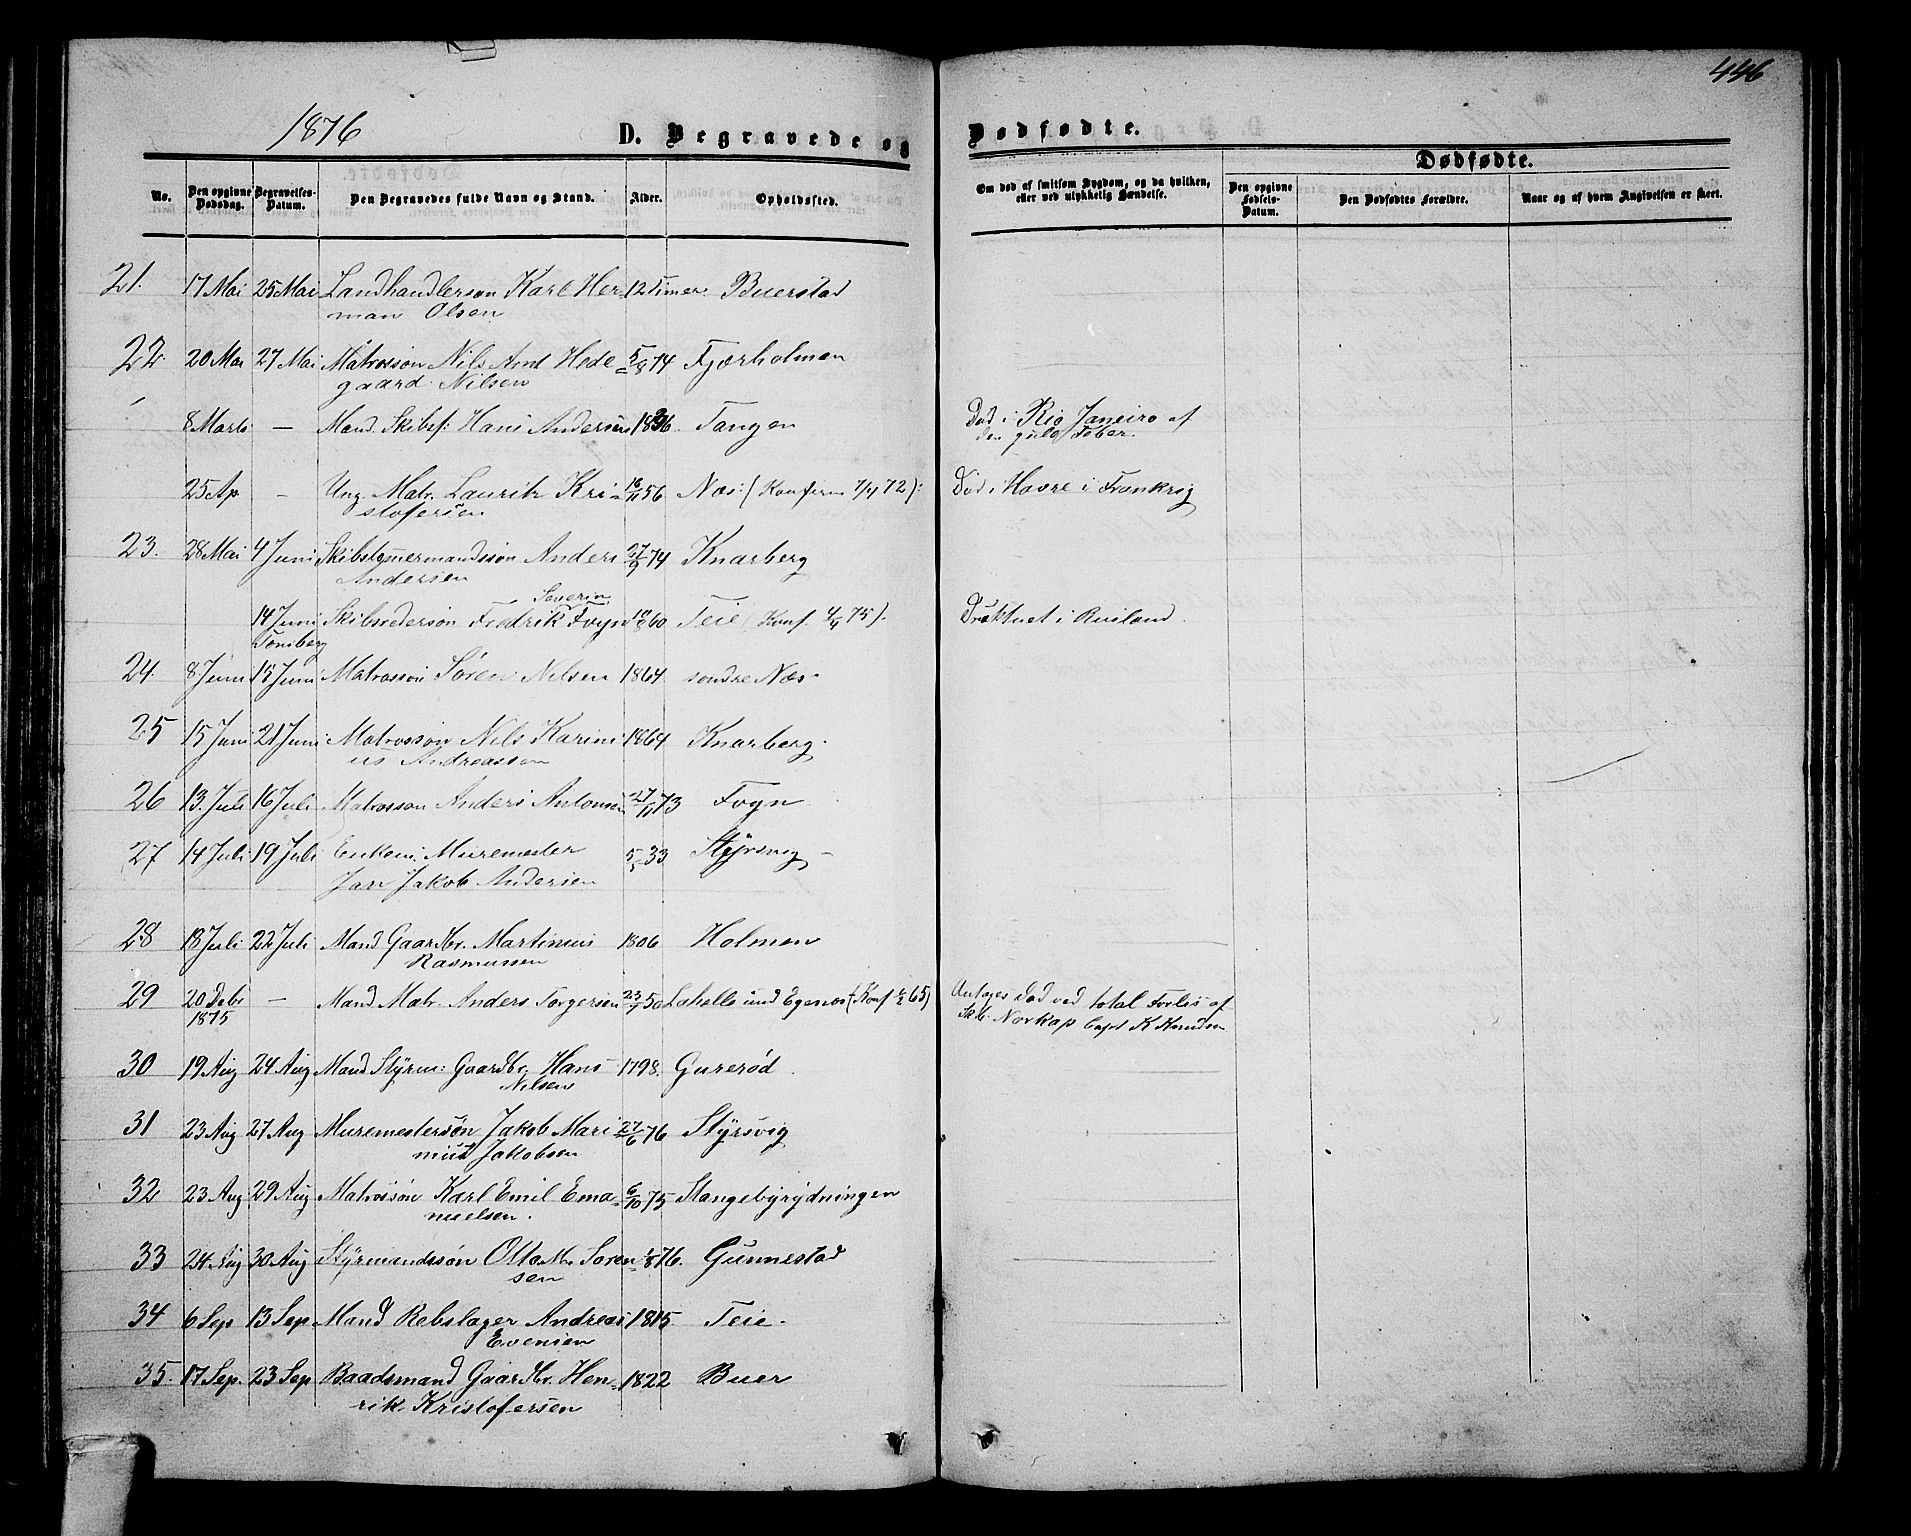 446
1876 D. Begravede og Dødfødte.
Dødfødte.
No. Den opgivne Dødsdag. Begravelses-Datum. Den Begravedes fulde Navn og Stand. Alder. Opholdssted. Om død af smitsom Sygdom, og da hvilken, eller ved ulykkelig Hændelse. Den opgivne Fødsels-Datum. Den Dødfødtes Forældre. Naar og af hvem Angivelsen er skeet.
21. 17 Mai 25 Mai Landhandlersøn Karl Her- 12 Timer. Buerstad
man Olsen
22 20 Mai 27 Mai Matrossøn Nils Hede- 5/8 74 Fjærholmen
gaard Nilsen
8 Marts — Mand. Skibsf: Hans Andersen Tangen Død i Rio Janeiro af
den gule Feber.
25 Ap — Ung. Matr. Lauritz Kri- 56 Næs: (Konferm 7/4 72): Død i Havre i Frankrig
stofersen
23. 28 Mai 4 Juni Skibstømermandssøn Anders 27/9 74 Knarberg
Andersen
Severin
14 Juni Skibsredersøn Fredrik Føyn 60 Teie (Konf. 4/4 75). Druknet i Rusland.
Tønsberg
24. 8 Juni 15 Juni Matrossøn Søren Nilsen 1864 søndre Næs
25 15 Juni 21 Juni Matrossøn Nils Karini- 1864 Knarberg.
us Andreassen
26 13. Juli 16 Juli Matrossøn Anders Antonsen 27/11 73 Føyn
27 14 Juli 19 Juli Enkem. Muremester 33 Styrsvig –
Jan Jakob Andersen
28 18 Juli 22 Juli Mand Gaardbr. Martinius 1806 Holmen
Rasmussen
29 20 Debr — Mand Matr. Anders Torgersen 23/7 50 Lahelle und Egenes (Konf 65) Antages død ved total Forlis af
1875 Skb. Norkap Capt K Knudsen
30 19 Aug 24 Aug Mand Styrm: Gaardbr. Hans 1798. Gurerød
Nilsen
31 23 Aug 27 Aug Muremestersøn Jakob Mari- 27/6 76 Styrsvig
nius Jakobsen
32 23 Aug 29 Aug Matrossøn Karl Emil Ema- 6/10 75 Stangebyrydningen
nuelsen.
33 24. Aug 30 Aug Styrmandssøn Otto M. Søren- 1/8 76. Gunnestad
sen
34 6 Sep 13 Sep. Mand Rebslager Andreas 1815. Teie.
Evensen
35. 17 Sep. 23 Sep Baadsmand Gaardbr. Hen- 1822 Buer
rik Kristofersen